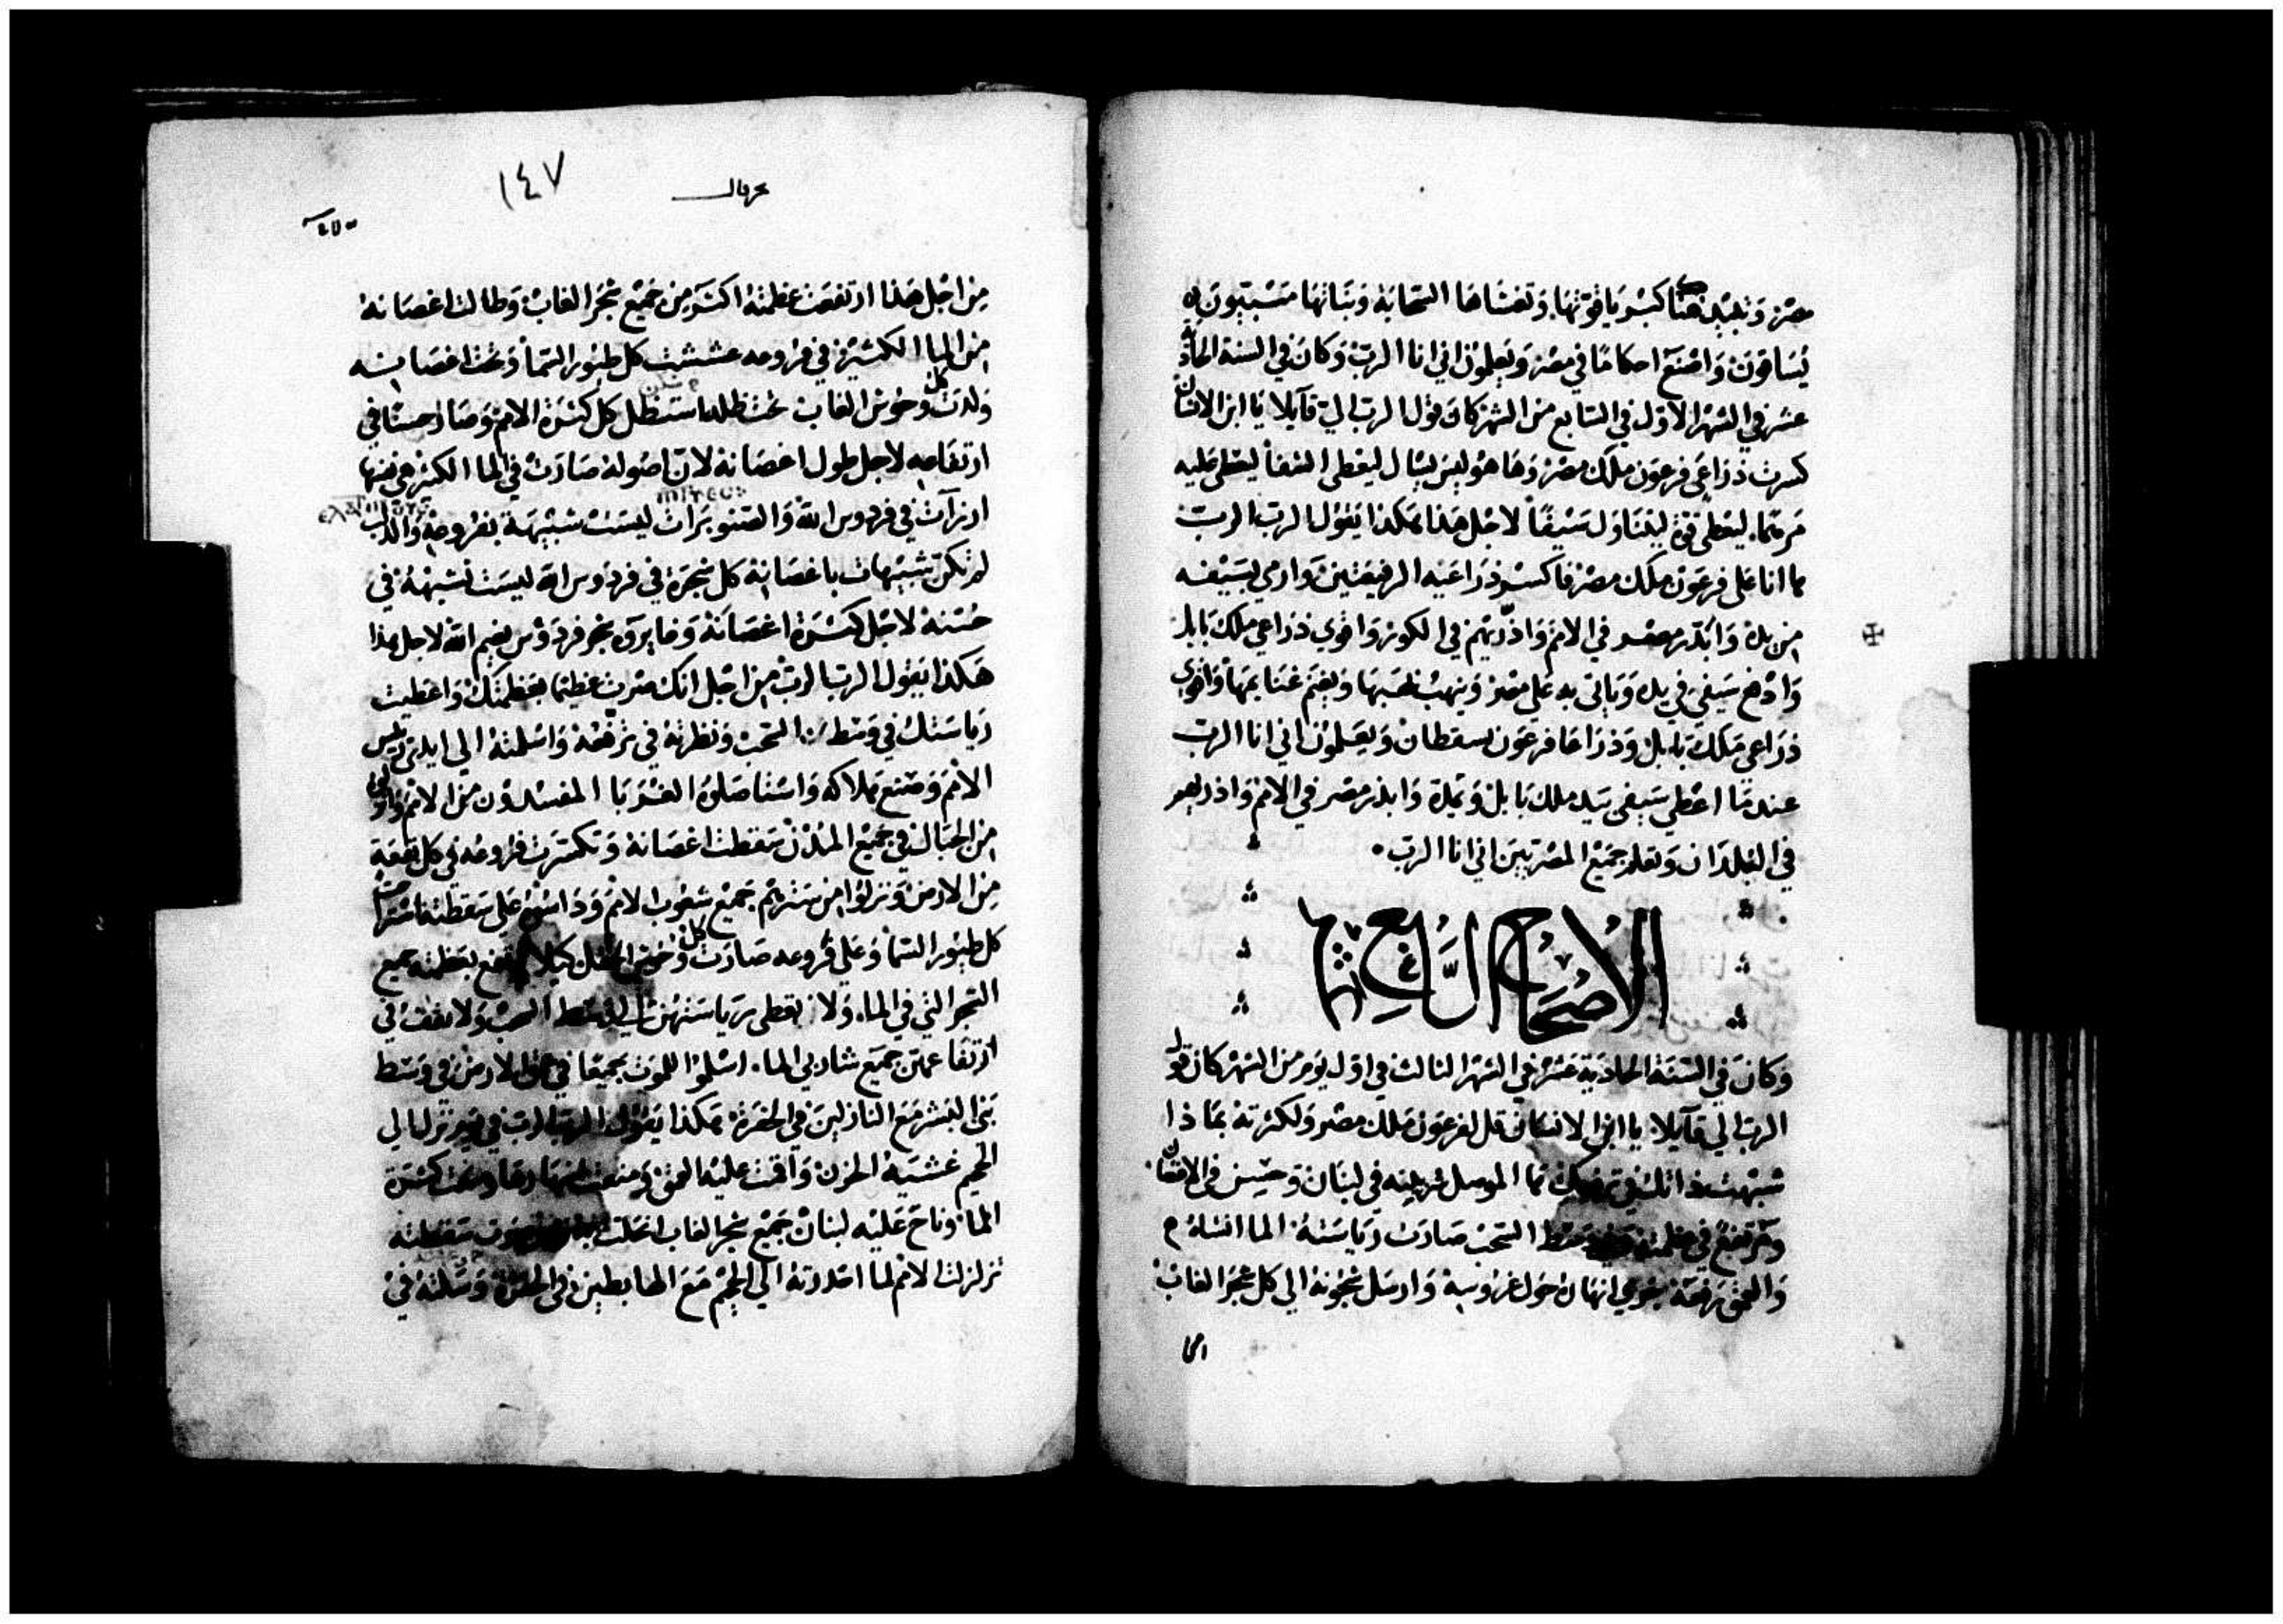 مصر وتبيد هناك كبريا قوتها وتغشاها السحابة وبناتها مسبيون
يساقون واصنع احكاما في مصر ويعلمون اني انا الرب وكان في السنة الحاد
عشر في الشهر الاول في السابع من الشهر كان قول الرب الي قايلا يا ابن الانسان
كسرت ذراعي فرعون ملك مصر وها هو ليس يسال ليعطى الشفا ليعطى عليه
مرهما. ليعطى قوة ليتناول سيفا لاجل هذا هكذا يقول الرب الرب
ها انا على فرعون ملك مصر فاكسر ذراعيه الرفيعتين وارمي بسيفه
من يده وابذر مصر في الامم واذريهم في الكور واقوي ذراعي ملك بابل
وادفع سيفي في يده وياتي به على مصر وينهب نهبها ويغنم غنايمها واقوي
ذراعي ملك بابل وذراعا فرعون يسقطان ويعلمون اني انا الرب
عندما اعطي سيفي بيد ملك بابل ويمده وابذر مصر في الامم واذريهم
في البلدان وتعلم جميع المصريين اني انا الرب.
الاصحاح الرابع
وكان في السنة الحادية عشر في الشهر الثالث في اول يوم من الشهر كان قول
الرب الي قايلا يا ابن الانسان قل لفرعون ملك مصر ولكثرته بماذا
شبهت ذاتك في في لبنان وحسن في الاغصان
ومرتفع في عظمته وسط السحب صارت رياسته الما انشاه
والعمق رفعه انهاره حول غروسه وارسل الى كل شجر الغاب
١٤٧
حزقيال
من اجل هذا ارتفعت عظمته اكثر من جميع شجر الغاب وطالت اغصانه
من الما الكثير في فروعه عششت كل طيور السما وتحت اغصانه
ولدت كل وحوش الغاب تحت ظله استظل كل كثرة الامم وصار حسنا في
ارتفاعه لاجل طول اغصانه لان اصوله صارت في الما الكثير
في فردوس الله والصنوبرات ليست شبيهة بفروعه
لم تكن شبيهات باغصانه كل شجرة في فردوس الله ليست تشبهه في
حسنه لاجل كثرة اغصانه شجر فردوس نعيم الله لاجل هذا
هكذا يقول الرب الرب من اجل انك صرت عظيما بعظمتك واعطيت
رياستك في وسط السحب ونظرته في ترفعه واسلمته الى ايدي رييس
الامم وصنع هلاكه واستاصلوه الغربا المفسدون من الامم
من الجبال في جميع المدن سقطت اغصانه وتكسرت فروعه في كل بقعة
من الارض ونزلوا من سترهم جميع شعوب الامم وداسوه على سقطته
كل طيور السما وعلى فروعه صارت كل وحوش الحقل كيلا يرتفع بعظمته جميع
الشجر التي في الما. ولا تعطى رياستهن في وسط السحب ولا يقف في
ارتفاعهن جميع شاربي الما. اسلموا للموت جميعا في عمق الارض في وسط
بني البشر مع النازلين في الحفرة هكذا يقول الرب الرب في يوم نزل الى
الجحيم غشيه الحزن واقمت عليه العمق ومنعت انهارها ومنعت كثرة
الما وناح عليه لبنان جميع شجر الغاب سقطته
تزلزلت الامم لما احدرته الى الجحيم مع الهابطين في الحفرة وسلته في